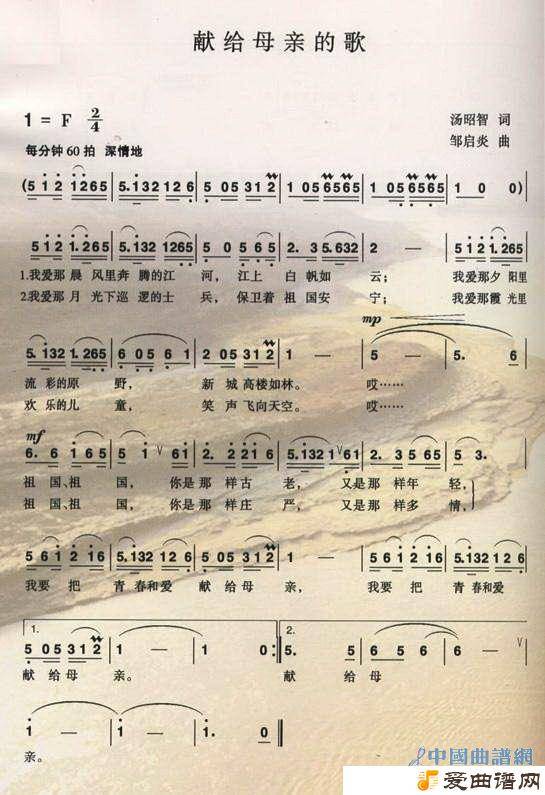 献给母亲的歌
1 = F 2/4
汤昭智 词
每分钟60拍 深情地
邹启炎 曲
(5 1 2 1265 | 5.132 12 6 | 5 05 31 2 | 1 05 6565 | 1 06 6565 | 1 0)
5 1 2 1.265 | 5.132 1265 | 6 0 5 0 | 3 02 3 5.632 | 2 - | 5 1 2 1.265
1.我爱那 晨 风里奔 腾的江 河，江上 白帆如 云； 我爱那夕 阳里
2.我爱那 月 光下巡 逻的士 兵，保卫着 祖国安 宁； 我爱那霞 光里
mp
5.132 1.265 | 6 05 6 1 | 2 05 31 2 | 1 - | 5 - | 5. 6
流 彩的原 野， 新 城 高楼如林。 哎……
欢 乐的儿 童， 笑 声 飞向天空。 哎……
mf
祖 国、祖 国， 你是 那 样古 老， 又是 那 样年 轻，
祖 国、祖 国， 你是 那 样庄 严， 又是 那 样多 情，
我要 把 青 春和爱 献给母 亲， 我要 把 青 春和爱
1. 2.
5 05 31 2 | 1 - | 1 - | 1 0 :|
献 给母 亲。 献 给 母
1 - | 1 - | 1 0 ||
亲。
中國曲譜網
爱曲谱网